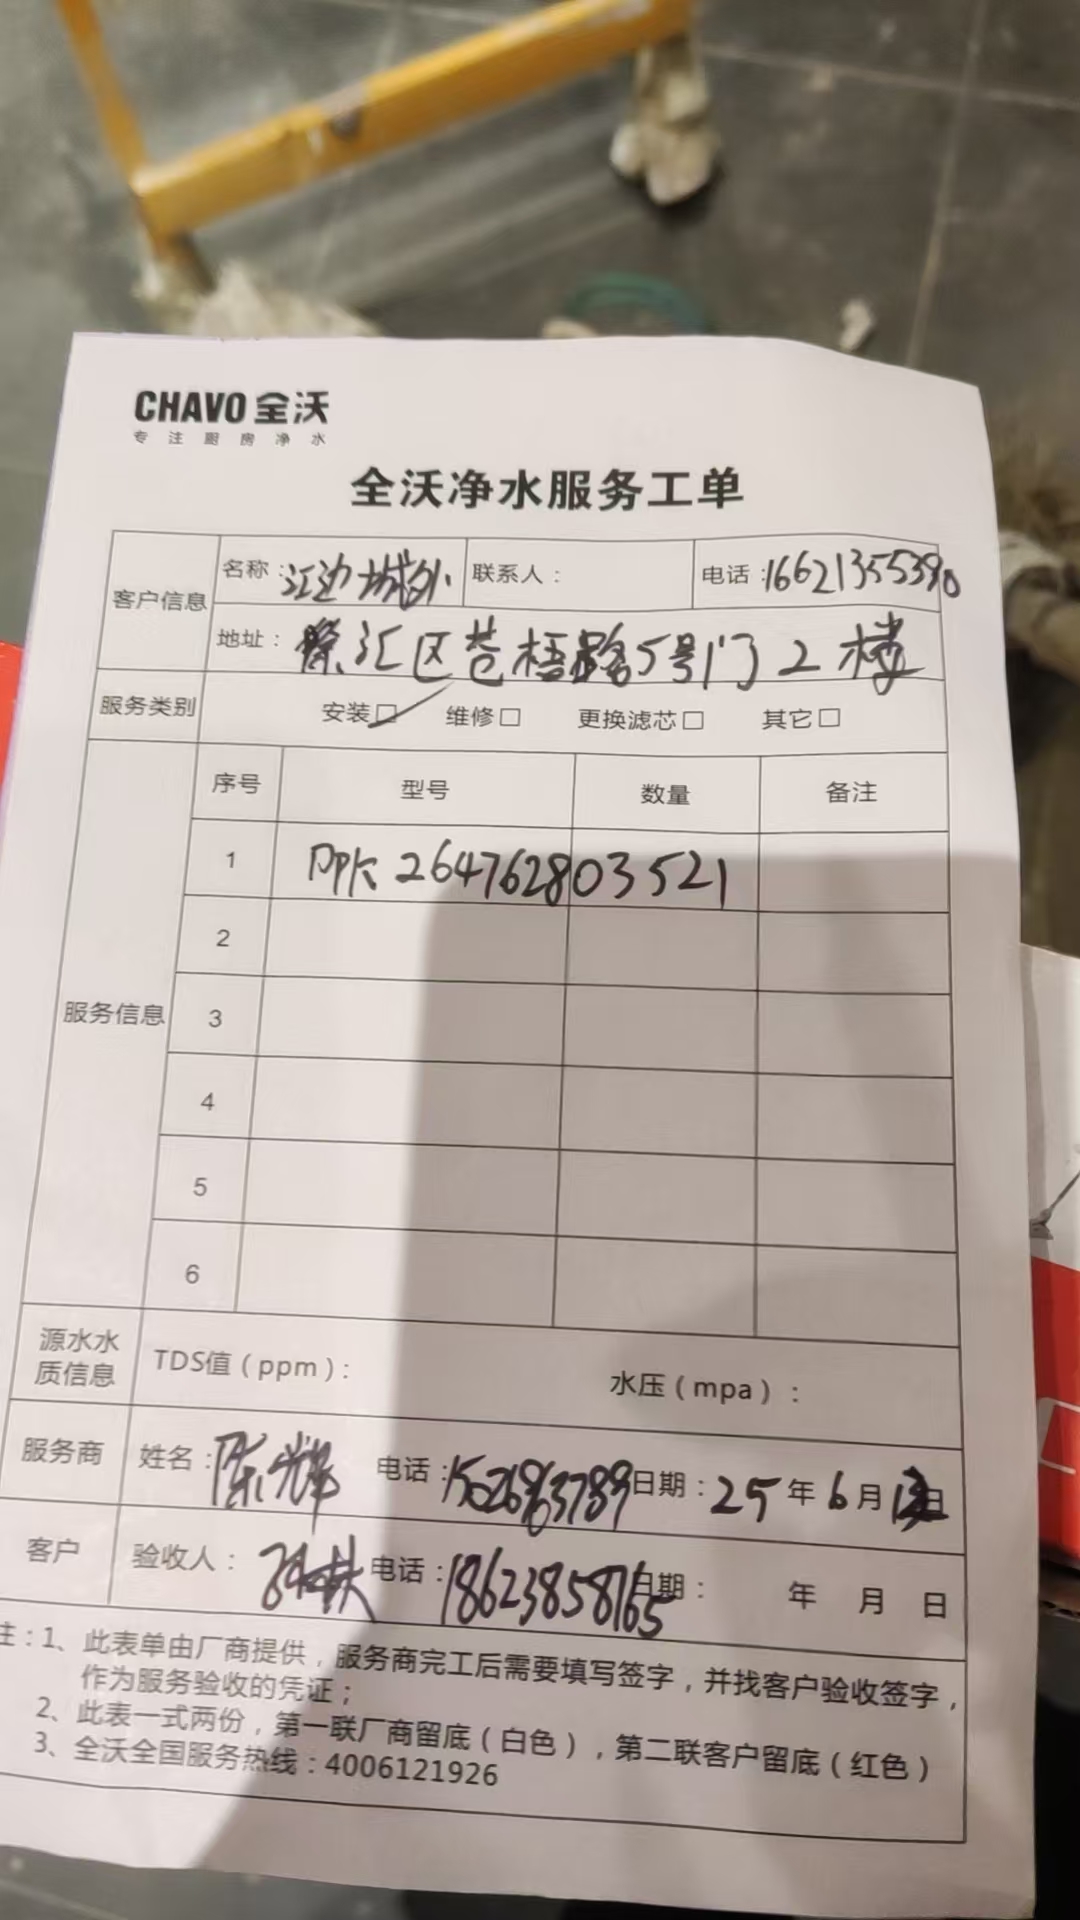 CHAVO 全沃
专注厨房净水
全沃净水服务工单
客户信息 名称：江边城外 联系人： 电话：16621355390
地址：徐汇区苍梧路5号门2楼
服务类别 安装□ 维修□ 更换滤芯□ 其它□
服务信息 序号 型号 数量 备注
1 264762803521
2
3
4
5
6
源水水质信息 TDS值（ppm）： 水压（mpa）：
服务商 姓名：陈辉 电话： 日期：25年6月 日
客户 验收人： 电话：18623858765 日期： 年 月 日
注：1、此表单由厂商提供，服务商完工后需要填写签字，并找客户验收签字，
作为服务验收的凭证；
2、此表一式两份，第一联厂商留底（白色），第二联客户留底（红色）
3、全沃全国服务热线：4006121926